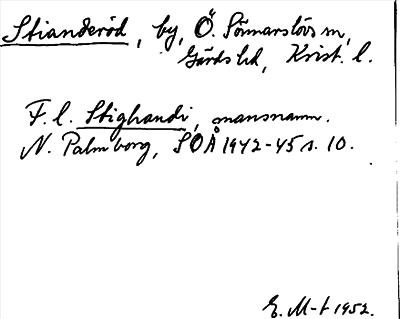 Stianderöd, by, Ö. Sönnarslövs sn,
Gärds hd, Krist. l.
F. l. Stighandi, mansnamn.
N. Palmborg, SOÅ 1942-45 s. 10.
E. M-t 1952.